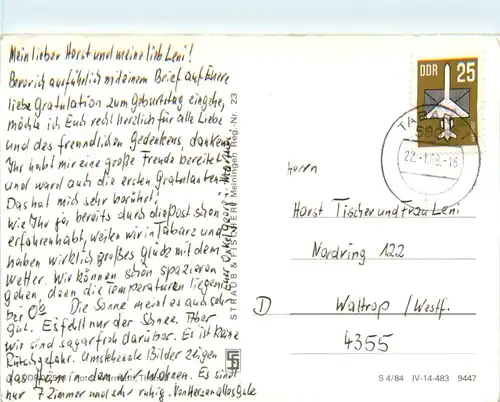 Mein lieber Horst und meine lieb Leni!
Bevor ich ausführlich mit einem Brief auf Euere
liebe Gratulation zum Geburtstag eingehe,
möchte ich Euch recht herzlich für alle Liebe
und des freundlichen Gedenkens, danken.
Ihr habt mir eine große Freude bereitet
und ward auch die ersten Gratulanten!
Das hat mich sehr berührt!
Wie Ihr ja bereits durch die Post schon
erfahren habt, weilen wir in Tabarz und
haben wirklich großes Glück mit dem
Wetter. Wir können schön spazieren
gehen, denn die Temperaturen liegen
bei 0°. Die Sonne meint es auch sehr
gut. Es fehlt nur der Schnee. Aber
wir sind sogar froh darüber. Es ist keine
Rutschgefahr. Umstehende Bilder zeigen
das Heim in dem wir wohnen. Es sind
nur 7 Zimmer und sehr ruhig. Von Herzen alles Gute
Euer Onkel Georg u.
STRAUB & FISCHER Meiningen Reg.-Nr. 23
DDR 25
TABARZ
22.-1.
-16
Herrn
Horst Tischer und Frau Leni
Nordring 122
D Waltrop /Westf.
4355
S 4/84 IV-14-483 9447